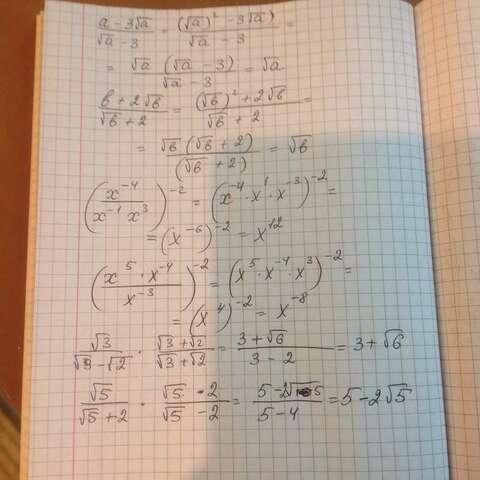 (a - 3√a)/(√a - 3) = ((√a)² - 3√a)/(√a - 3) =
= √a (√a - 3)/(√a - 3) = √a
(b + 2√b)/(√b + 2) = ((√b)² + 2√b)/(√b + 2) =
= √b (√b + 2)/(√b + 2) = √b
(x⁻⁴/(x⁻¹ x³))⁻² = (x⁻⁴ · x¹ · x⁻³)⁻² =
= (x⁻⁶)⁻² = x¹²
((x⁵ · x⁻⁴)/x⁻³)⁻² = (x⁵ · x⁻⁴ · x³)⁻² =
= (x⁴)⁻² = x⁻⁸
√3/(√3 - √2) · (√3 + √2)/(√3 + √2) = (3 + √6)/(3 - 2) = 3 + √6
√5/(√5 + 2) · (√5 - 2)/(√5 - 2) = (5 - 2√5)/(5 - 4) = 5 - 2√5